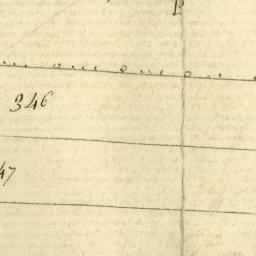 P
346
47